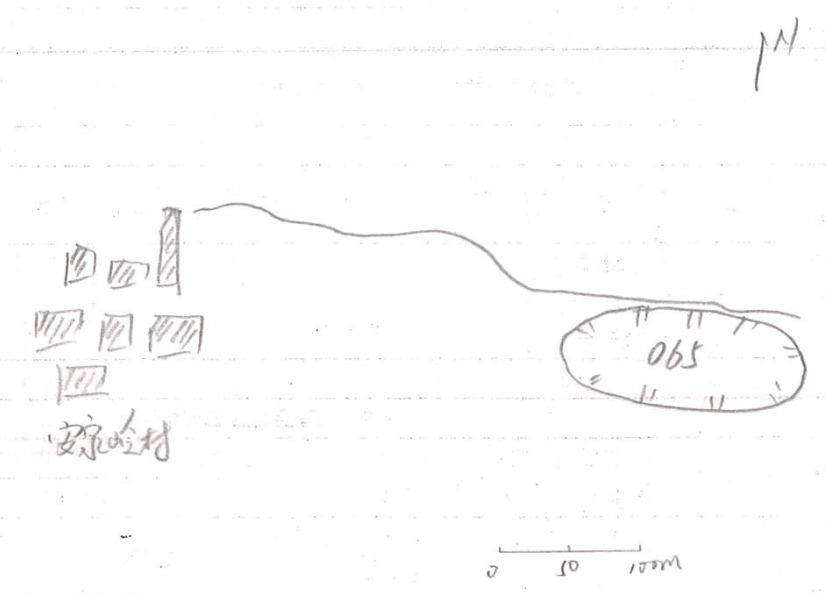 N
065
安家岭村
0 50 100m